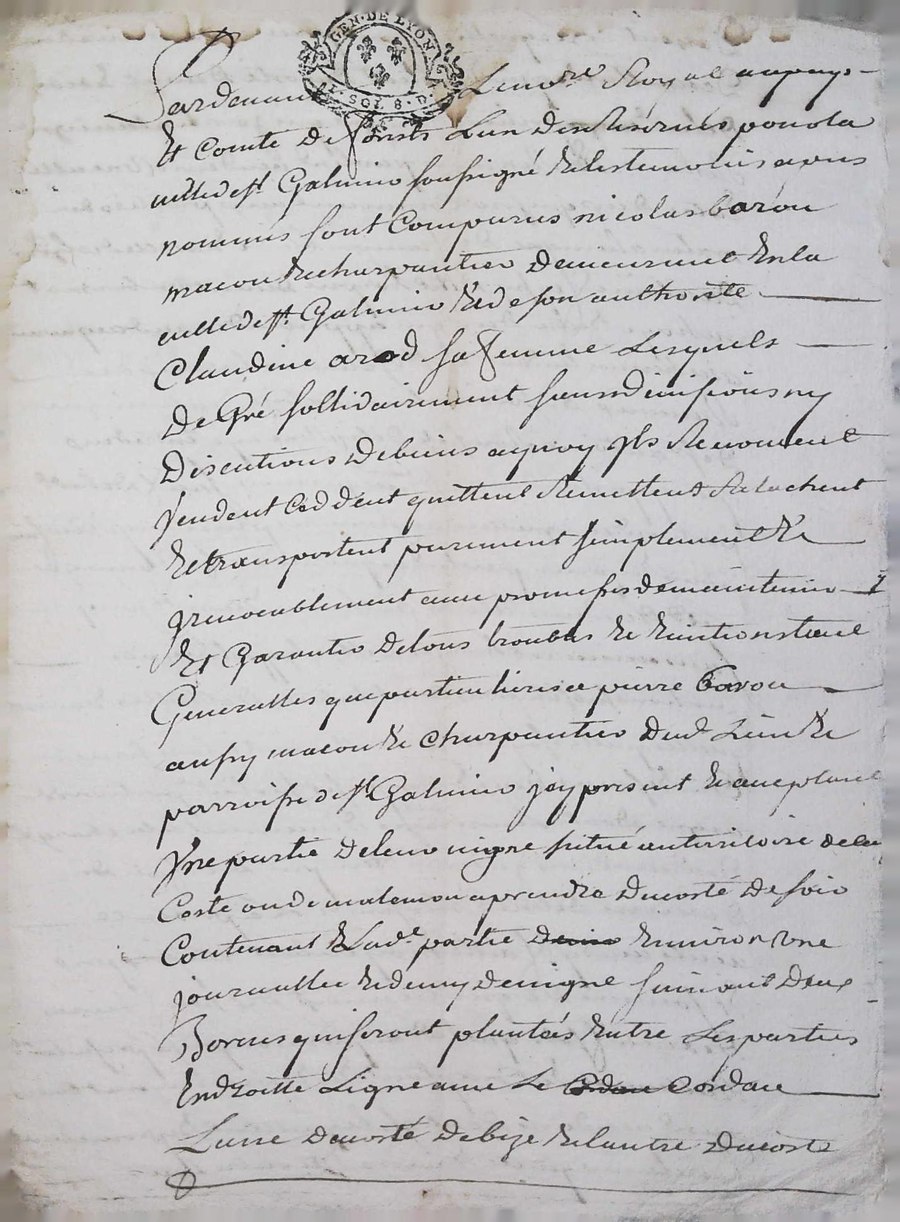 GEN. DE LYON
1. SOL 8. D
Pardevant Le no.re Royal au pays
Et Comté de forests L'un des Reservés pour la
ville de st Galmier soussigné Et les temoins apres
nommés sont Comparus nicolas baron
macon Et charpantier demeurant En la
ville de st. Galmier Et de son authorité
Claudine arod sa femme Lesquels
De Gré sollidairement sans division ny
Discutions de biens a quoy jls Renoncent
Vendent Ceddent quittent Remettent Relachent
Et transportent purement simplement Et
jrrevocablement avec promesses de maintenir
Et Garantir de tous troubles Et Evictions tant
Generalles que particulieres a pierre baron
aussy macon Et Charpantier dud. Lieu Et
parroisse de st Galmier jcy present Et acceptant
Vne partie de leur vigne situé au territoire de la
Coste ou de a prendre du costé de soir
Contenant Lad.e partie Environ Vne
journallée Et demy de vigne suivant deux
Bornes qui seront plantées Entre Les parties
En droitte Ligne avec Le Cordeau
L'une du costé de bize Et l'autre du costé